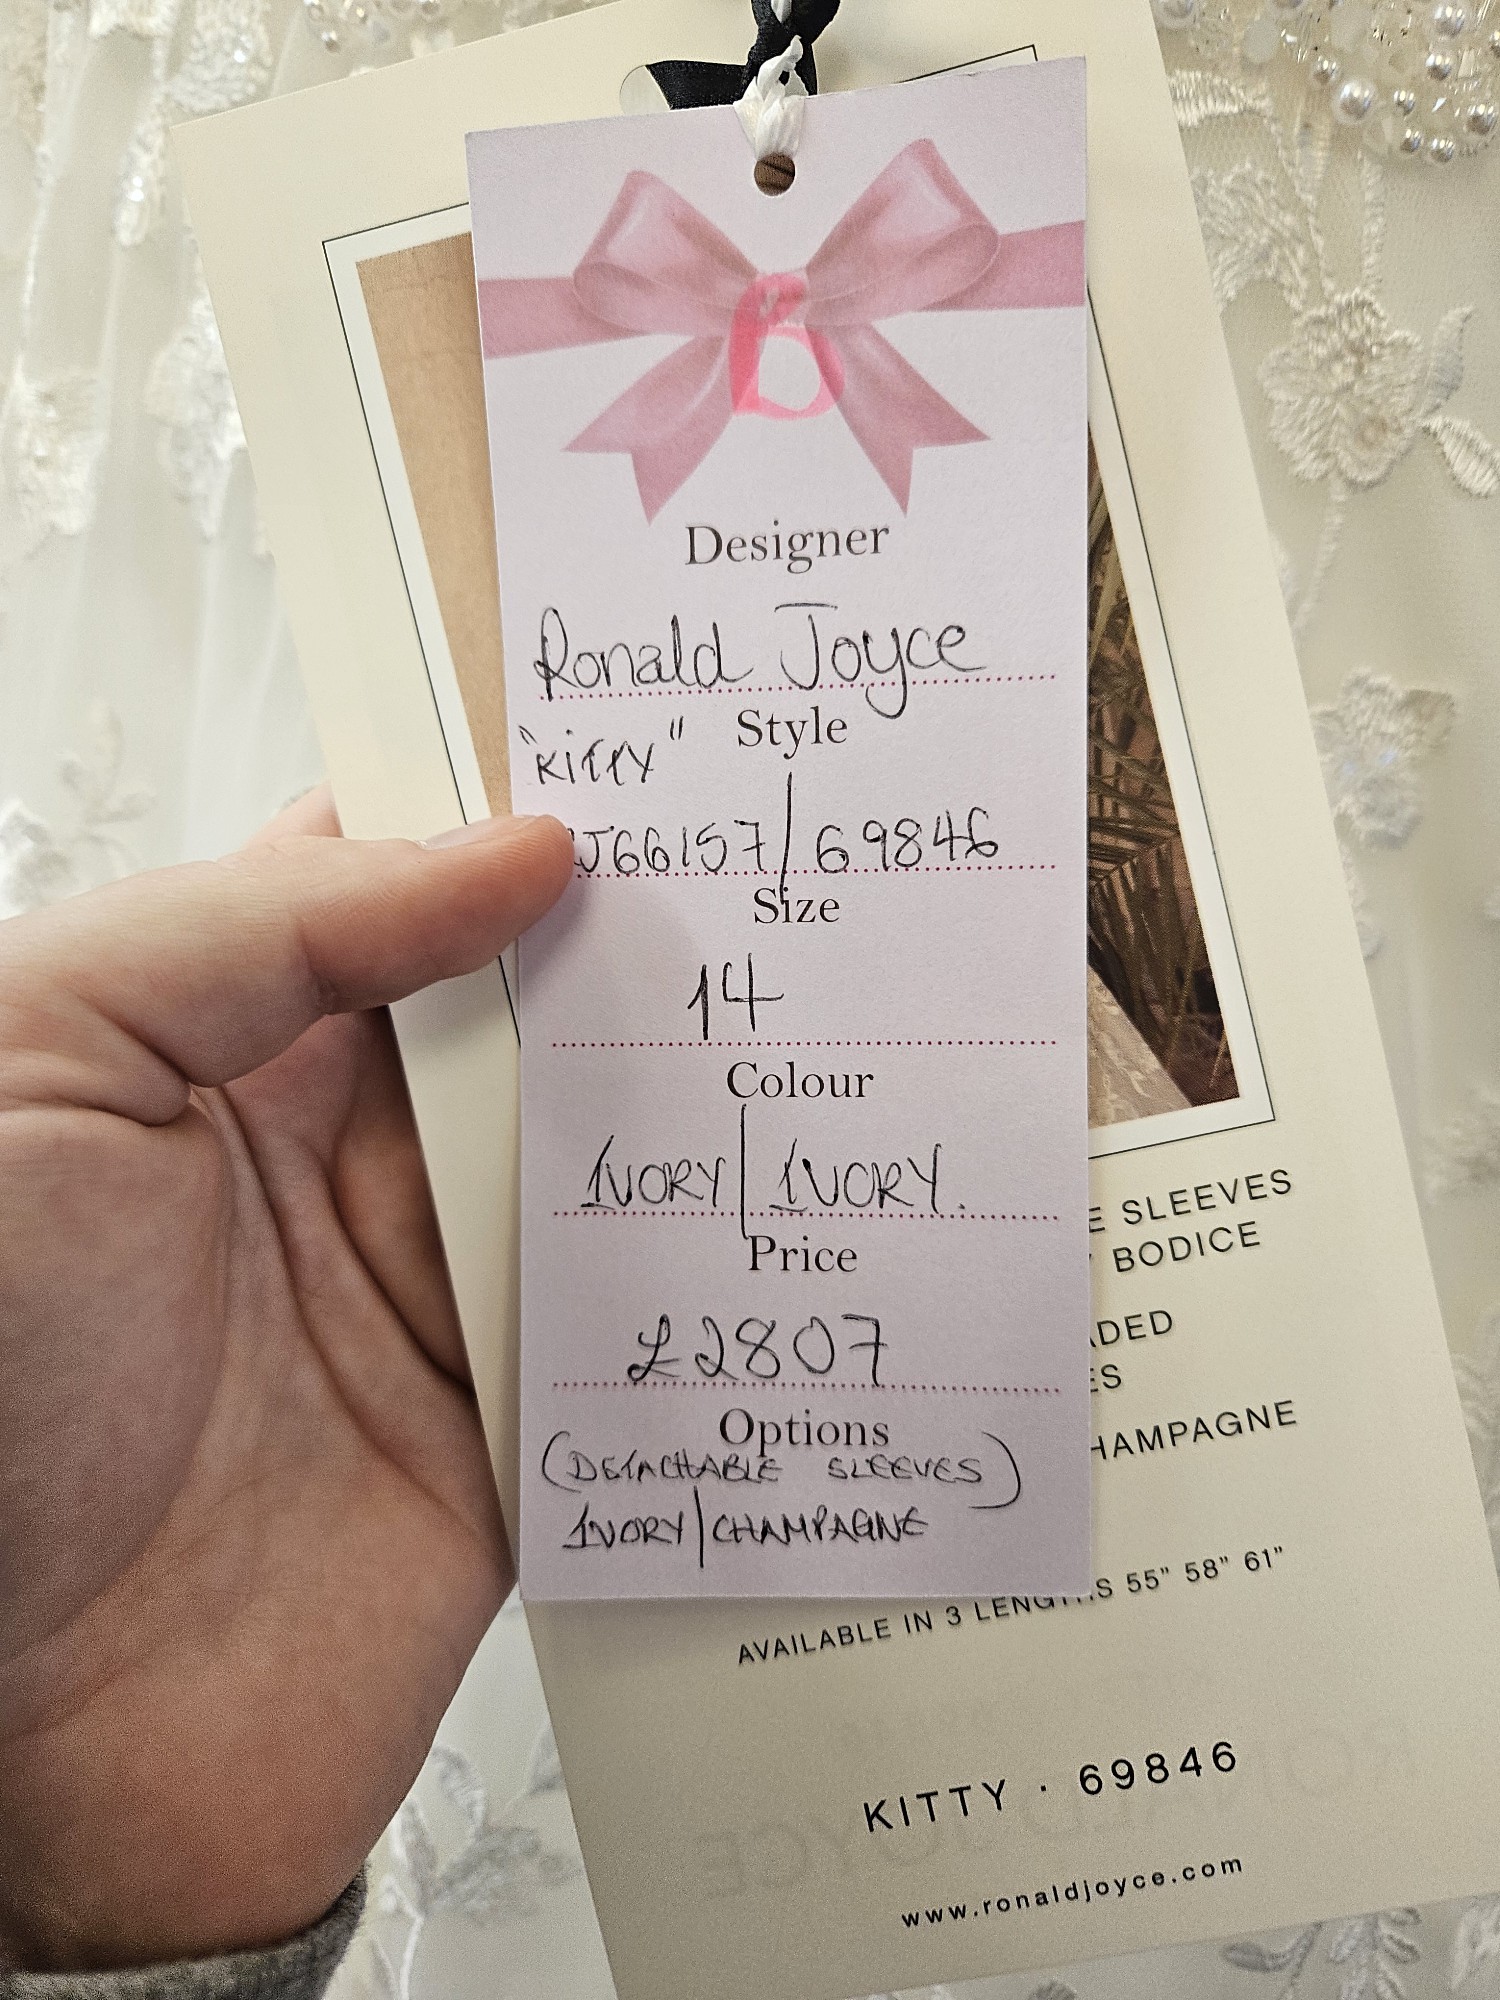 B
Designer
Ronald Joyce
Style
"KITTY"
J66157 / 69846
Size
14
Colour
IVORY | IVORY.
Price
£2807
Options
(DETACHABLE SLEEVES)
IVORY | CHAMPAGNE
SLEEVES
BODICE
AVAILABLE IN 3 55" 58" 61"
KITTY · 69846
www.ronaldjoyce.com